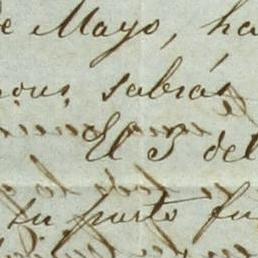 de Mayo, ha
sabrás
El 3 del
su parto fu